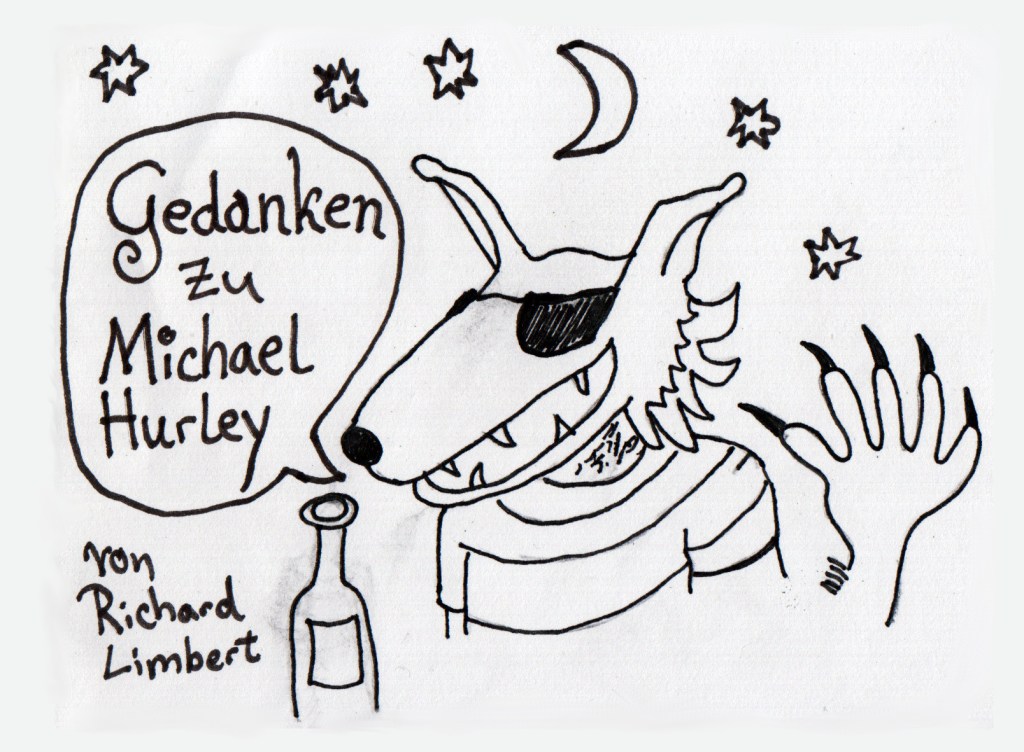 Gedanken
zu
Michael
Hurley
von
Richard
Limbert